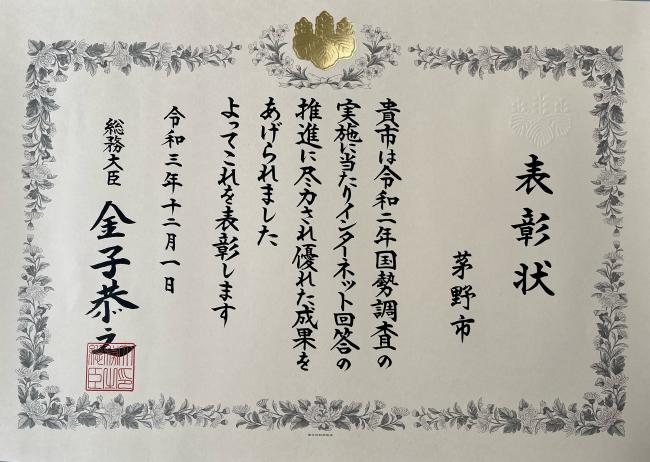 表彰状
茅野市
貴市は令和二年国勢調査の
実施に当たりインターネット回答の
推進に尽力され優れた成果を
あげられました
よってこれを表彰します
令和三年十二月一日
総務大臣 金子恭之